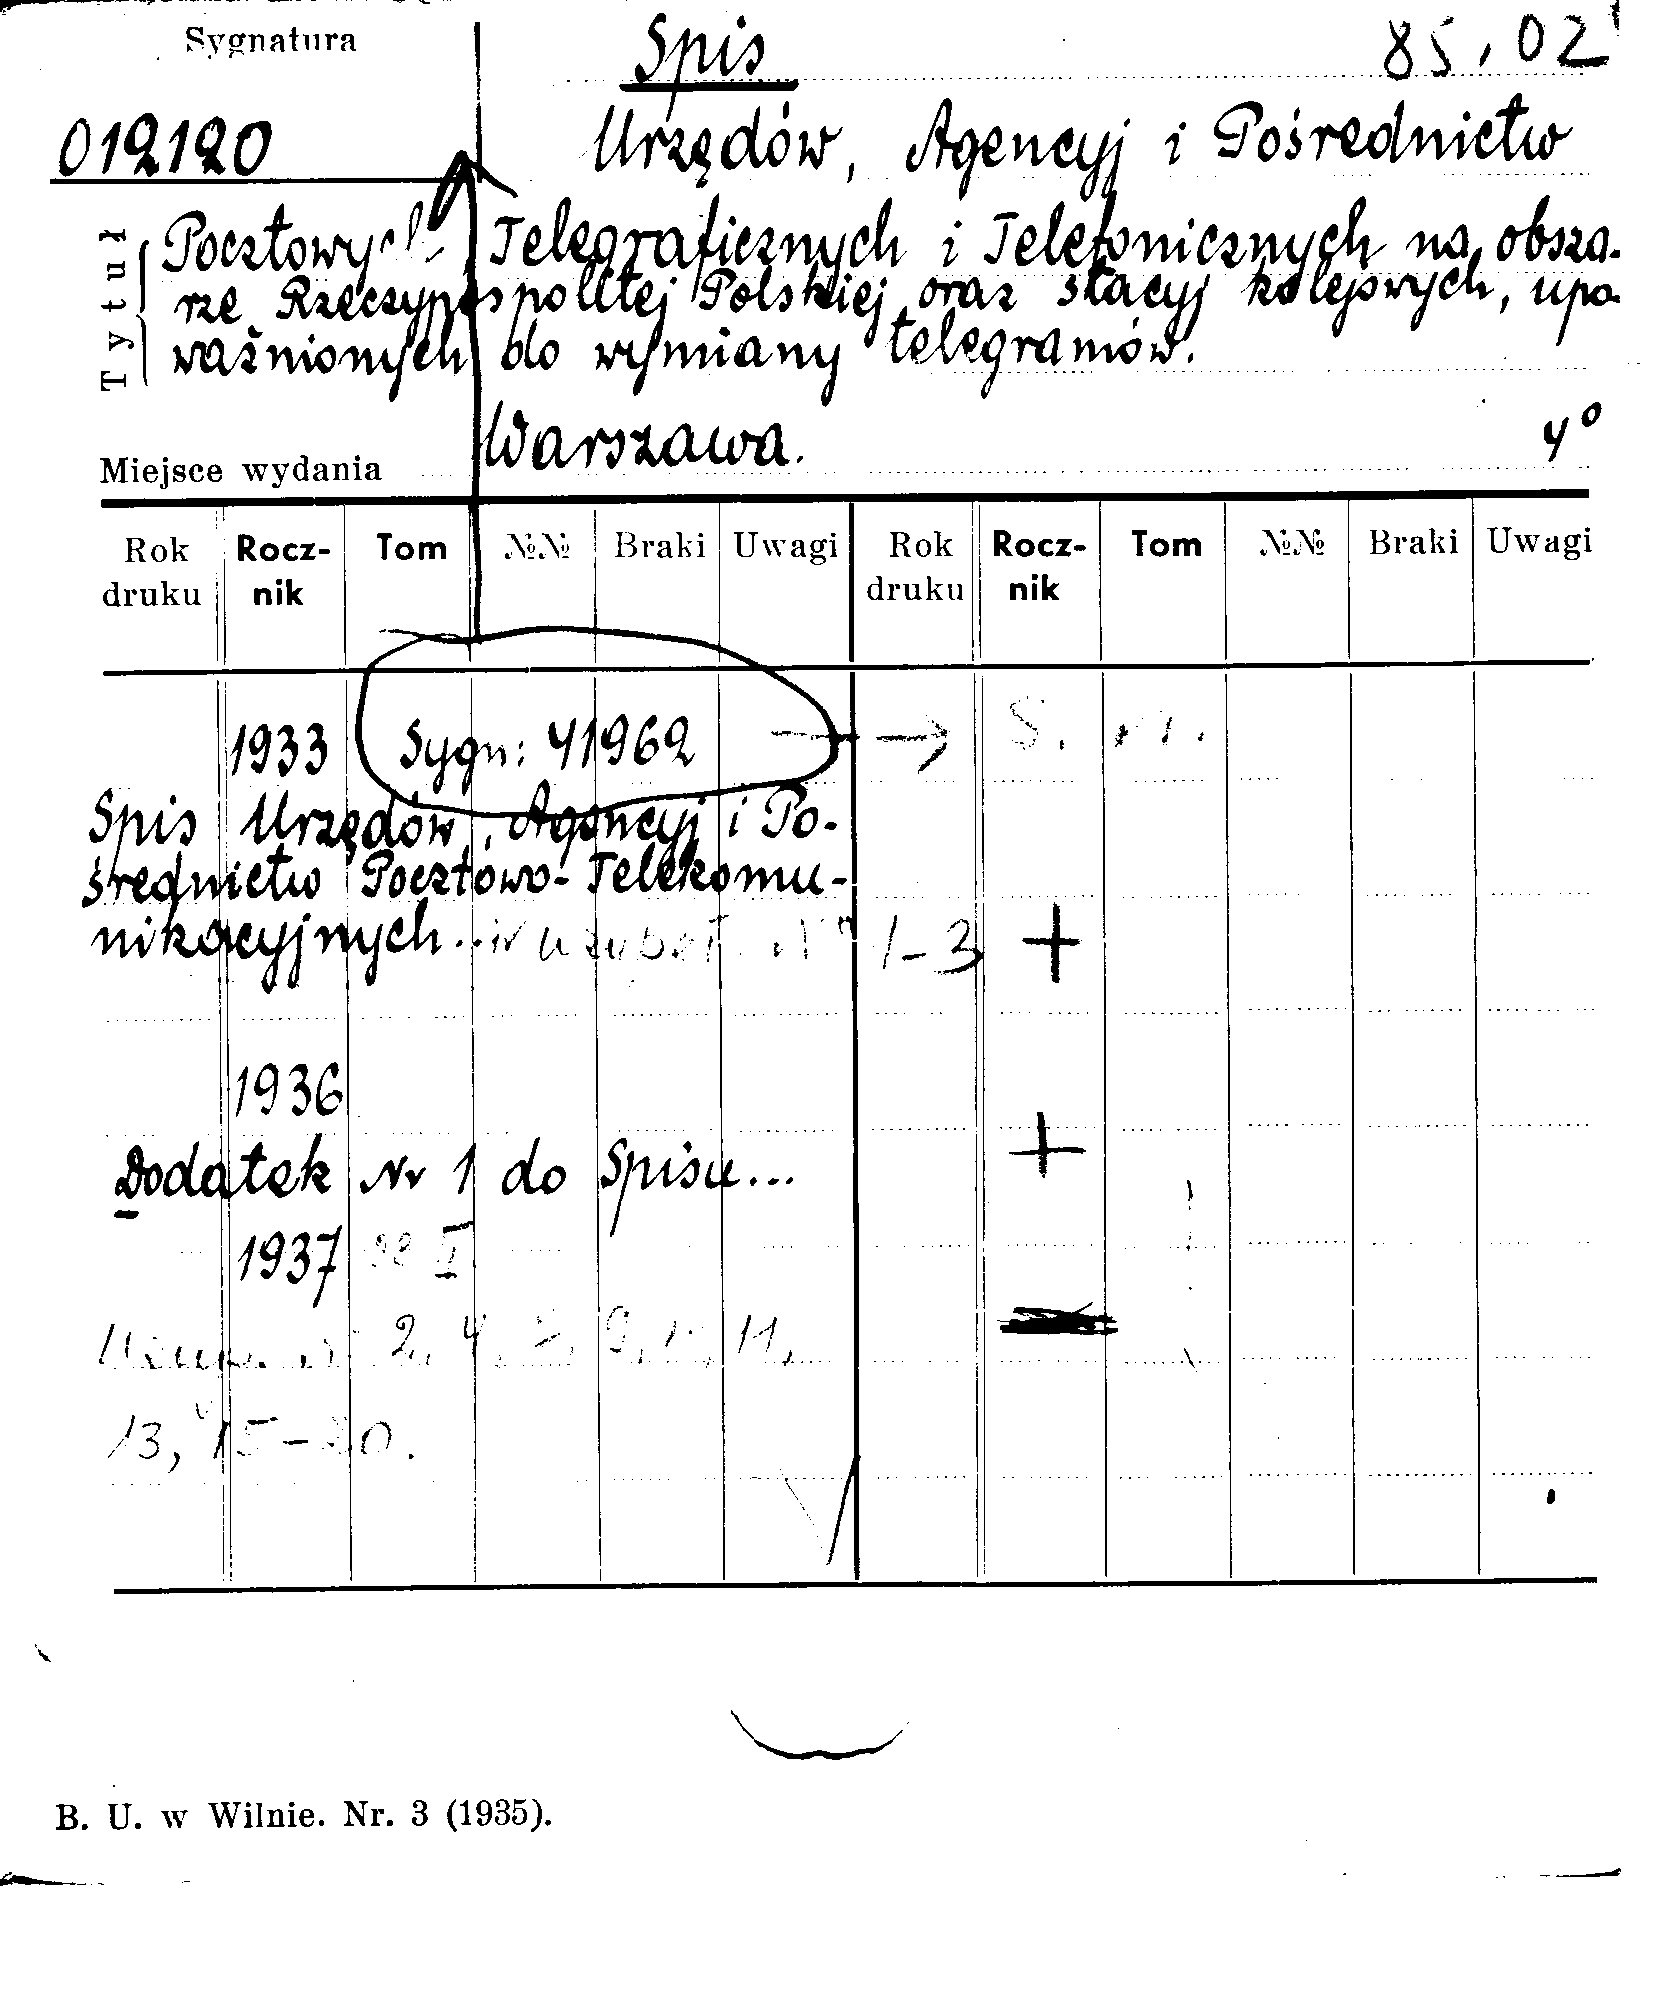 Sygnatura
Spis
85.02
012120
Urzędów, Agencyj i Pośrednictw
Tytuł
Pocztowych, Telegraficznych i Telefonicznych na obsza-
rze Rzeczypospolitej Polskiej oraz stacyj kolejowych, upo-
ważnionych do wymiany telegramów.
Miejsce wydania Warszawa. 4°
Rok druku Rocz-nik Tom №№ Braki Uwagi Rok druku Rocz-nik Tom №№ Braki Uwagi
1933 Sygn: 41962 → S.
Spis Urzędów, Agencyj i Po-
średnictw Pocztowo-Telekomu-
nikacyjnych... 1-3 +
1936
Dodatek Nr 1 do Spisu... +
1937 II
2, 4, 9, 11,
13, 15-20.
B. U. w Wilnie. Nr. 3 (1935).